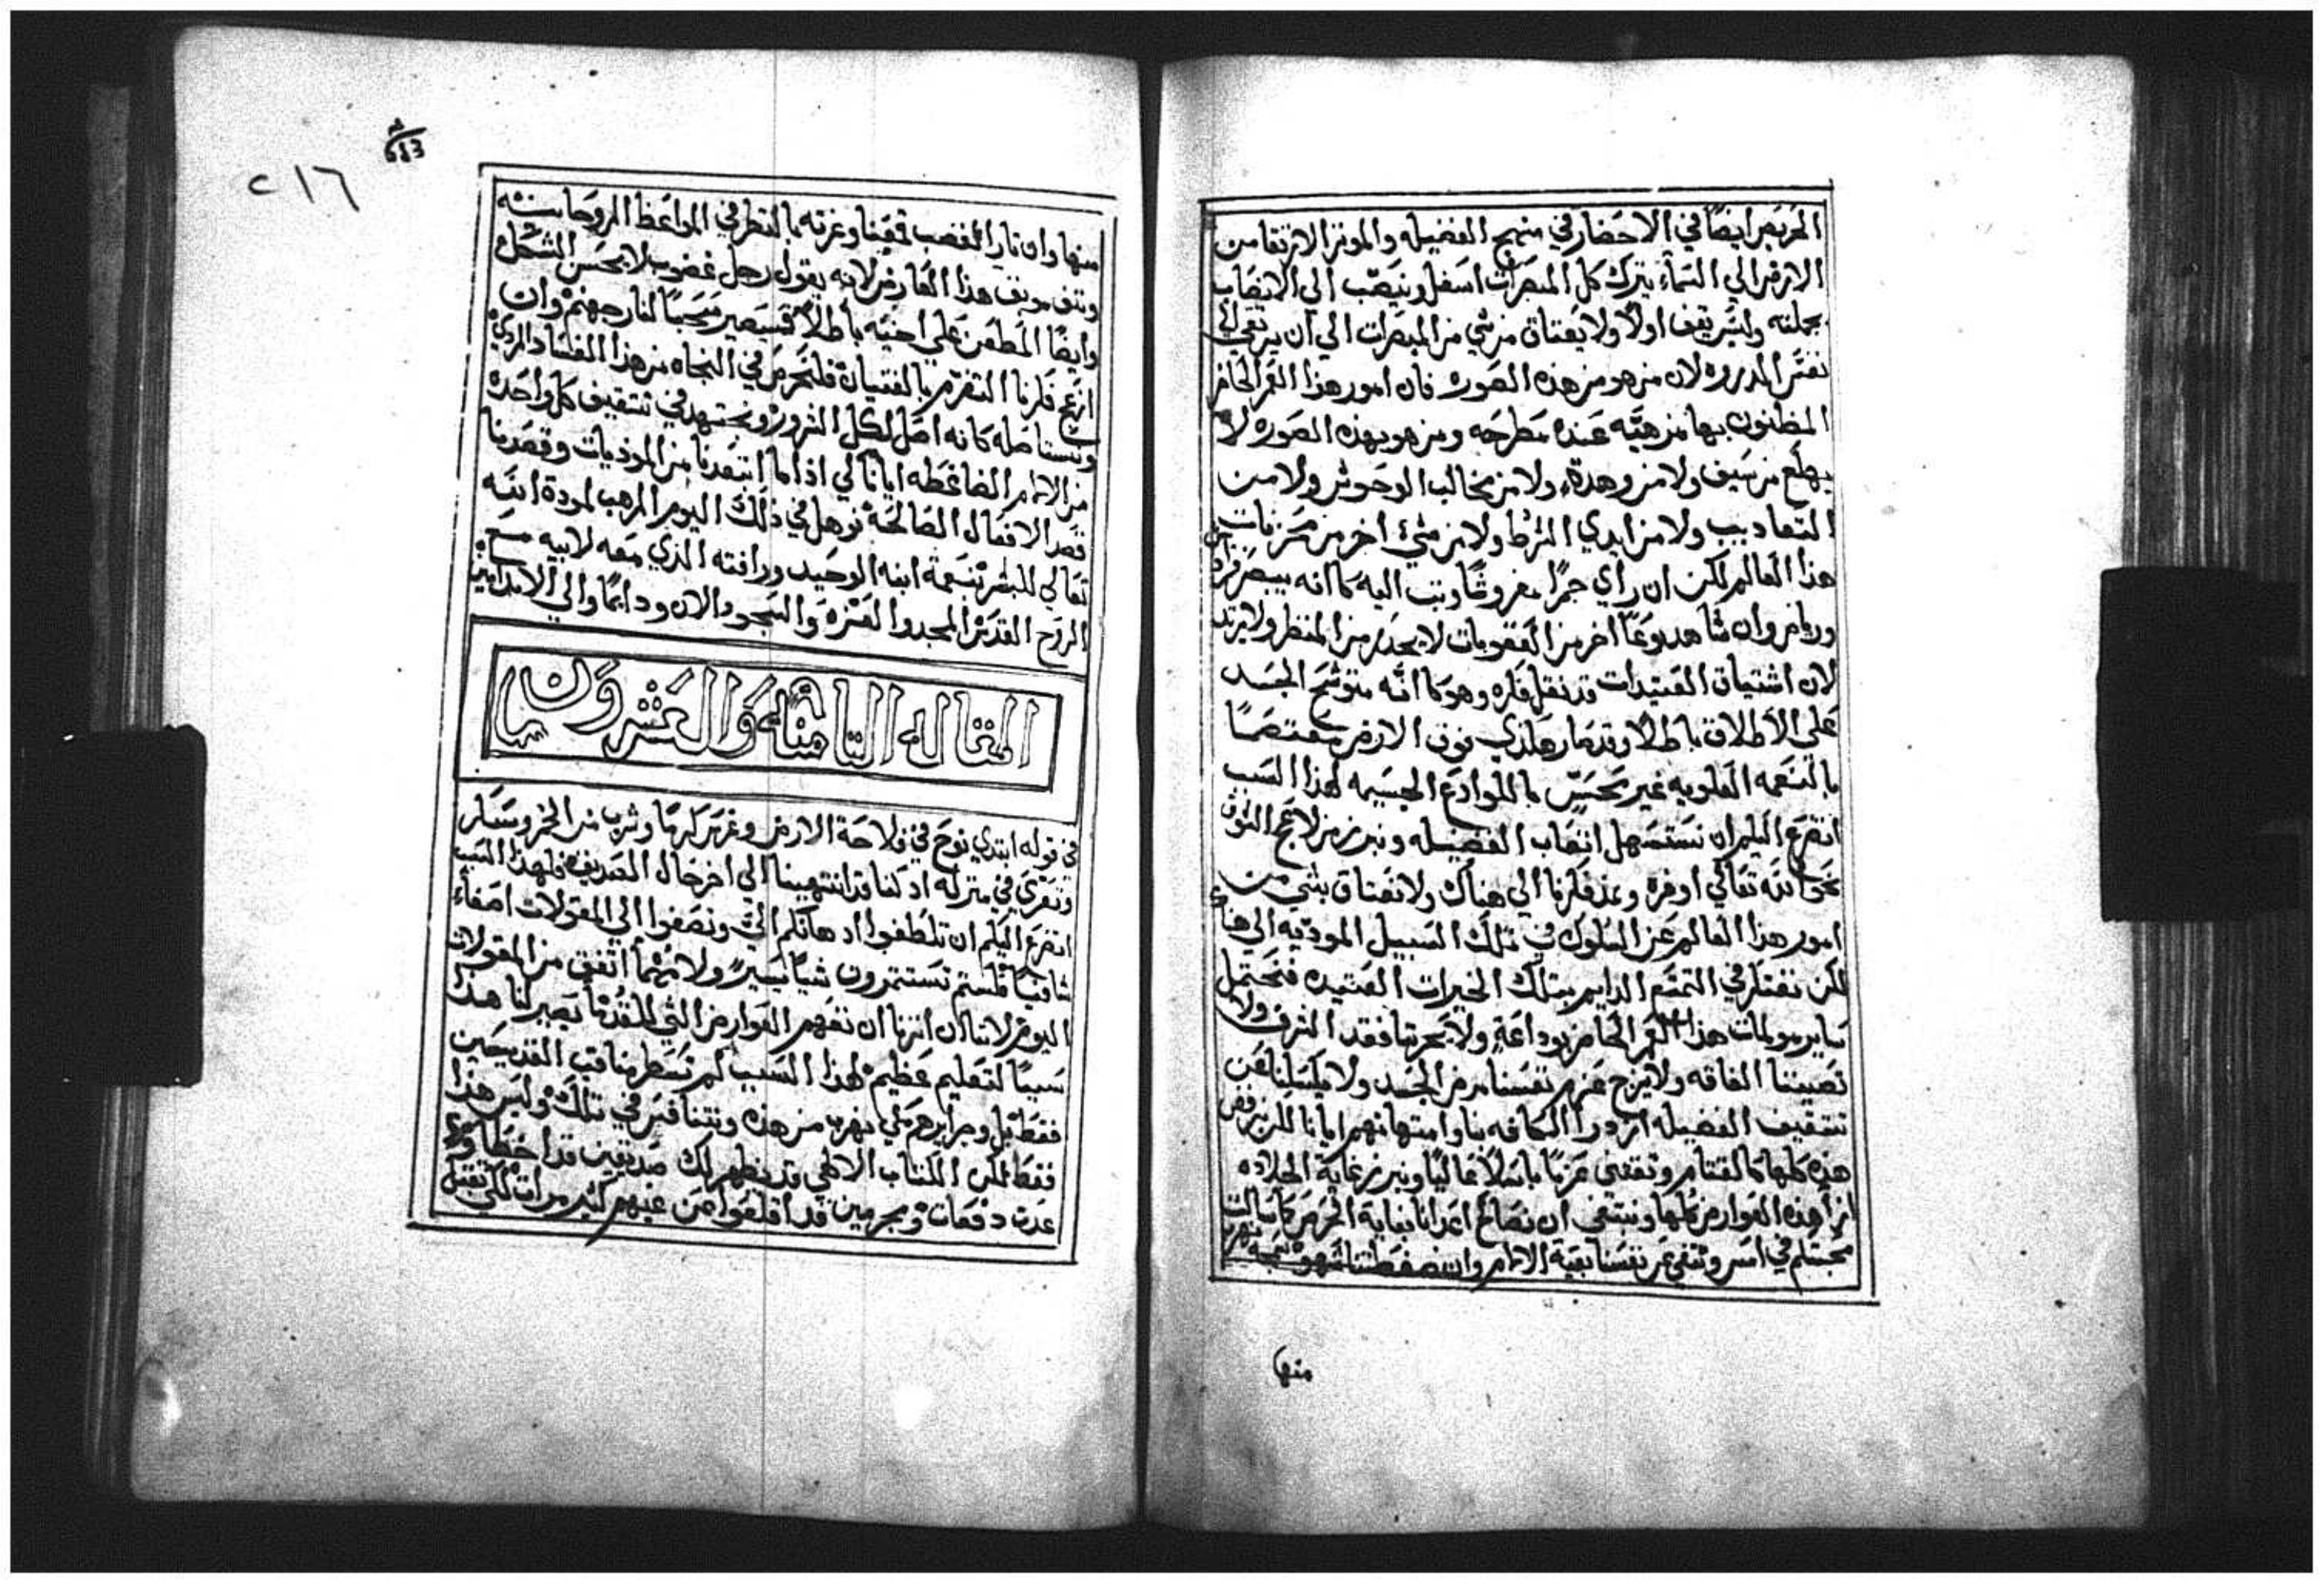 الحريص ايضًا في الاحضار في منهج الفضيله والموثر الارتقا من
الارض الي السماء يترك كل المبصرات اسفل وينصب الي الانتصاب
بجملته وليس يقف اولاً ولا يعتاق من شي من المبصرات الي ان يرتقي الي
نفس الدروه لان من هو من هذه الصوره فان امور هذا العمر الحاضر
المظنون بها مرهبَه عنده مطرحه ومن هو بهذه الصوره لا
يهلع من سيف ولا من وهدة ولا من مخالب الوحوش ولا من
التعاديب ولا من ايدي الشرط ولا من شي اخر من محزنات
هذا العالم لكن ان راي جمرًا مفروشًا وتب اليه كما انه يبصر
ورياض وان شاهد نوعًا اخر من العقوبات لا يحدر من المنظر ولا يرتد
لان اشتياق العتيدات قد نقل فكره وهو كما انه متوشح الجسد
علي الاطلاق باطلاً وقد صار هكذي فوق الارض معتصمًا
بالنعمه العلويه غير محسّ بالمواجع الجسيمه لهذا السبب
اتضرع اليكم ان نستسهل اتعاب الفضيله ونبرز من لاعج الشوق
نحو الله تعالي اوفره ونمد فكرنا الي هناك ولا نعتاق بشي من
امور هذا العالم عن السلوك في تلك السبيل المودّيه الي هناك
لكن نفتكر في التمتع الدايم بتلك الخيرات العتيده فنحتمل
ساير مولمات هذا العمر الحاضر بوداعة ولا يحزننا فقد الشرف ولا
تضيبنا الفاقه ولا يزحزح عزم نفسنا مرض الجسد ولا يكسلنا عن
تتقيف الفضيله ازدرا الكافه بنا وامتهانهم ايانا لكن نرفض
هذه كلها كالقتام ونقتني عزمًا باسلاً عاليًا ونبرز غاية الجلاده
ازا هذه العوارض كلها ونبتغي ان نصالح اعدانا بغاية الحرص كما سالت
محبتكم في امس وننفي عن نفسنا بقية الالام وان ضغطتنا شهوه
منها
٢١٦
منها وان نار الغضب قمعنا وغرته بالتطرفي المواعظ الروحانيه
ونتف موبف هذا العارض لانه يقول رجل غضوب لا يحسن الشكل
وايضًا المطغن علي اخيه باطلاً فسيصير مستوجبًا لنار جهنم وان
ازعج فكرنا التغرم بالقنيان فلنحرص في النجاه من هذا الفساد الردي
ونستاصله كانه اصل لكل الشرور ونجتهد في تتقيف كل واحده
من الالام الضاغطه ايانا لكي اذا ما ابتعدنا من الموذيات وقصدنا
قصد الافعال الصالحة نوهل في ذلك اليوم المرهب لمودة الله
تعالي للبشر بنعمة ابنه الوحيد ورافته الذي معه لابيه مع
الروح القدس المجد والعزه والسجود الان ودايمًا والي الابد امين
المقاله الثامنه والعشرون
في قوله ابتدي نوح في فلاحة الارض وغرس كرمًا وشرب من الخمر وسكر
وتعري في منزله اد كنا قد انتهينا الي اخر حال الصديق فلهذا السبب
اتضرع اليكم ان تلطفوا ادهانكم الي وتصغوا الي المقولات اصغاءً
شافيًا فلستم تستتمرون شيًا يسيرًا ولا مهما اتفق من المقولات
اليوم لاننا ان اترنا ان نفهم العوارض التي للقدما يصير لنا هدا
سببًا لتعليم عظيم لهذا السبب لم تسطر مناقب القديسين
فقط بل وجرايرهم لكي نهرب من هذه ونتنافس في تلك وليس هذا
فقط لكن الكتاب الالهي قد يظهر لك صديقين قد اخطاوا
عدت دفعات ومجرمين قد اقلعوا عن غيهم كثير مرات لكي نقتبل